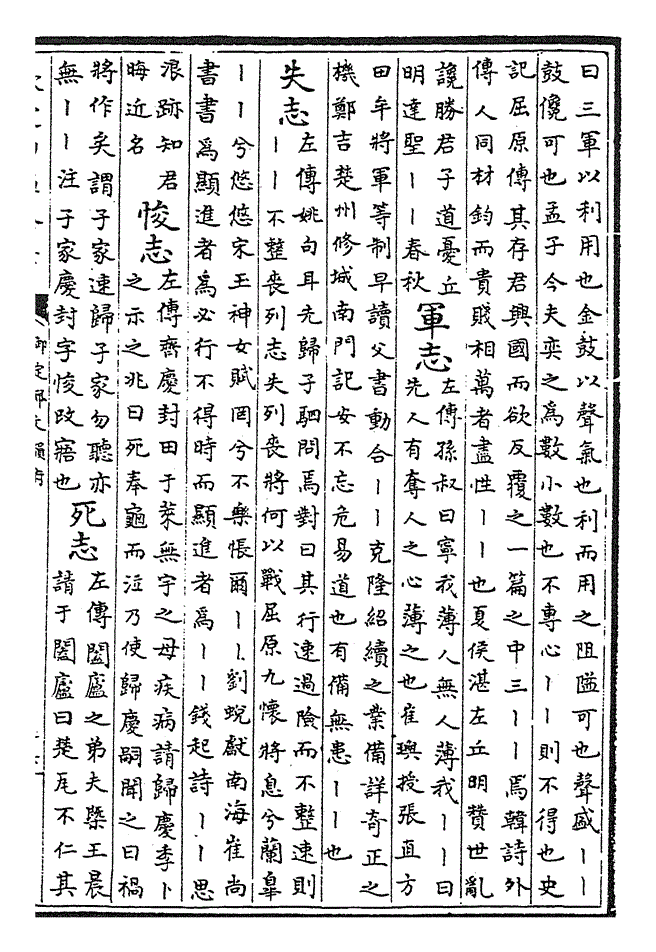 曰三軍以利用也金鼓以聲氣也利而用之阻隘可也聲盛丨丨
鼓儳可也孟子今夫奕之為數小數也不專心丨丨則不得也史
記屈原傳其存君興國而欲反覆之一篇之中三丨丨焉韓詩外
傳人同材鈞而貴賤相萬者盡性丨丨也夏侯湛左丘明贊世亂
讒勝君子道憂丘
明達聖丨丨春秋
軍志
左傳孫叔曰寧我薄人無人薄我丨丨曰
先人有奪人之心薄之也崔璵授張直方
田牟將軍等制早讀父書動合丨丨克隆紹續之業備詳奇正之
機鄭吉楚州修城南門記安不忘危易道也有備無患丨丨也
失志
左傳姚句耳先歸子駟問焉對曰其行速過險而不整速則
丨丨不整喪列志失列喪將何以戰屈原九懷將息兮蘭皐
丨丨兮悠悠宋王神女賦罔兮不樂悵爾丨丨劉蛻獻南海崔尚
書書為顯進者為必行不得時而顯進者為丨丨錢起詩丨丨思
浪跡知君
晦近名
悛志
左傳齊慶封田于萊無宇之母疾病請歸慶季卜
之示之兆曰死奉龜而泣乃使歸慶嗣聞之曰禍
將作矣謂子家速歸子家勿聽亦
無丨丨注子家慶封字悛改寤也
死志
左傳闔廬之弟夫㮣王晨
請于闔廬曰楚瓦不仁其